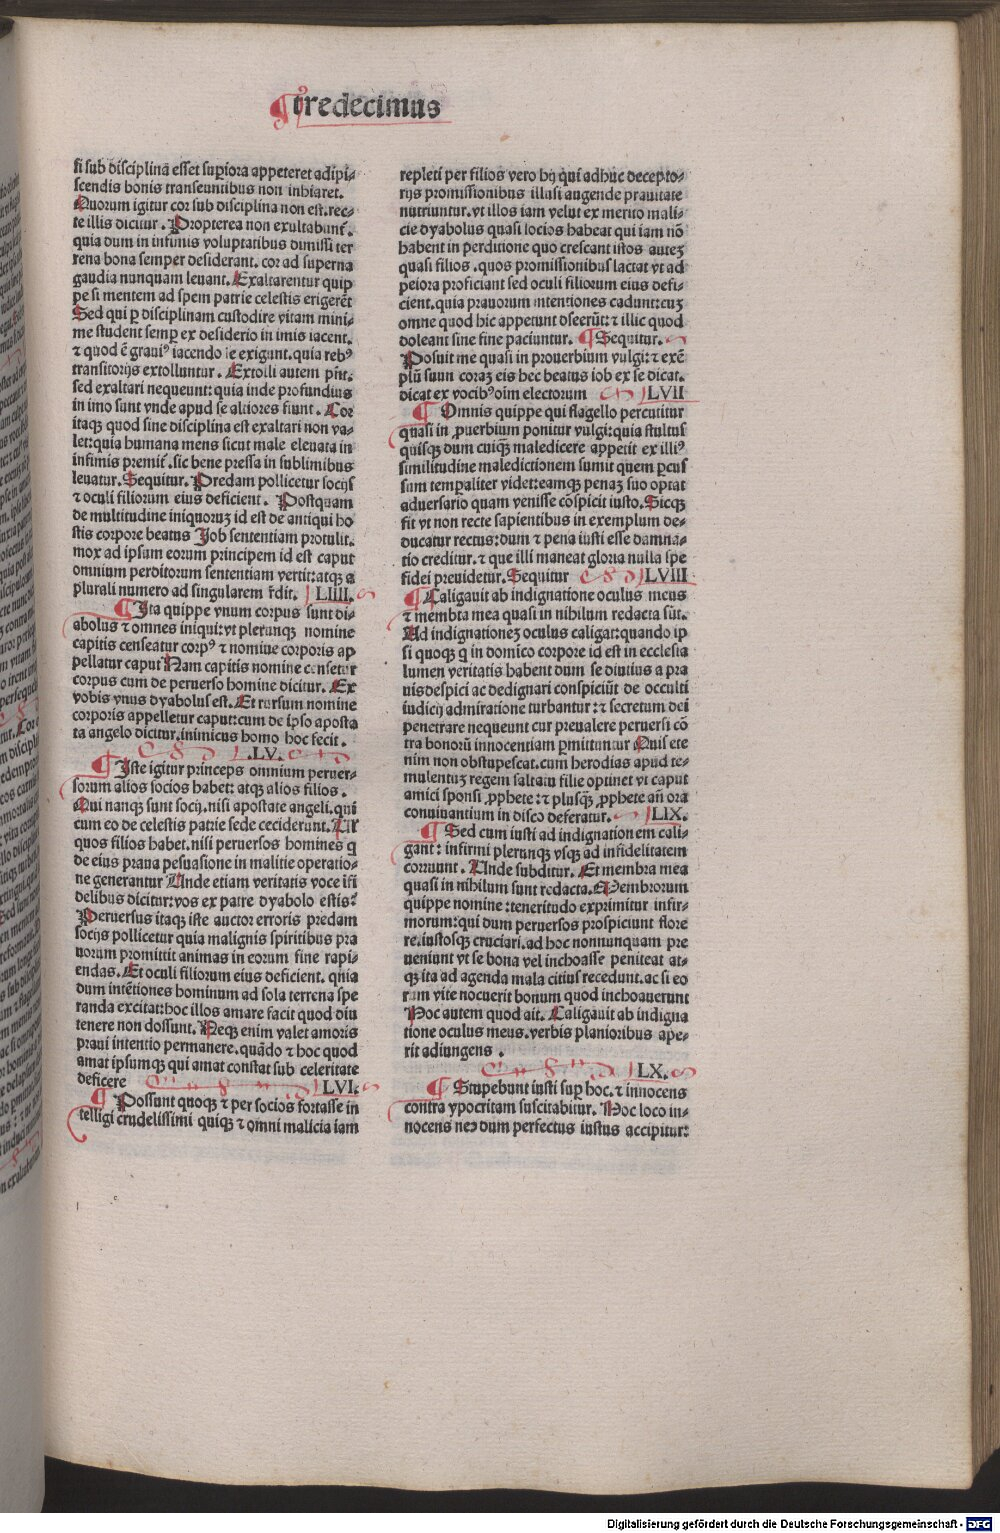 tredecimus
si sub disciplinā esset superiora appeteret adipi-
scendis bonis transeuntibus non inhiaret.
Quorum igitur cor sub disciplina non est. rec-
te illis dicitur. Propterea non exultabunt̄.
quia dum in infimis voluptatibus dimissi ter
rena bona semper desiderant. cor ad superna
gaudia nunquam leuant. Exaltarentur quip
pe si mentem ad spem patrie celestis erigerēt
Sed qui ꝑ disciplinam custodire vitam mini-
me student semꝑ ex desiderio in imis iacent.
⁊ quod ē grauiꝰ iacendo se exigunt. quia rebꝰ
transitorijs extolluntur. Extolli autem pn̄t.
sed exaltari nequeunt: quia inde profundius
in imo sunt vnde apud se altiores fiunt. Cor
itaqꝫ quod sine disciplina est exaltari non va-
let: quia humana mens sicut male eleuata in
infimis premit̄. sic bene pressa in sublimibus
leuatur. Sequitur. Predam pollicetur socijs
⁊ oculi filiorum eius deficient. Postquam
de multitudine iniquoruꝫ id est de antiqui ho
stis corpore beatus Job sententiam protulit.
mox ad ipsam eorum principem id est caput
omnium perditorum sententiam vertit: atqꝫ a
plurali numero ad singularem r̄dit. LIIII.
Ita quippe vnum corpus sunt di-
abolus ⁊ omnes iniqui: vt plerunqꝫ nomine
capitis censeatur corpꝰ ⁊ nomine corporis ap
pellatur caput Nam capitis nomine censetur
corpus cum de peruerso homine dicitur. Ex
vobis vnus dyabolus est. Et rursum nomine
corporis appelletur caput: cum de ipso aposta
ta angelo dicitur. inimicus homo hoc fecit.
.LV.
Iste igitur princeps omnium peruer-
sorum alios socios habet: atqꝫ alios filios.
Qui nanqꝫ sunt socij. nisi apostate angeli. qui
cum eo de celestis patrie sede ceciderunt. Al
quos filios habet. nisi peruersos homines q
de eius praua pesuasione in malitie operatio-
ne generantur Unde etiam veritatis voce īfi
delibus dicitur: vos ex patre dyabolo estis?
Peruersus itaqꝫ iste auctor erroris predam
socijs pollicetur quia malignis spiritibus pra
uorum promittit animas in eorum fine rapi-
endas. Et oculi filiorum eius deficient. quia
dum intētiones hominum ad sola terrena spe
randa excitat: hoc illos amare facit quod diu
tenere non dossunt. Neqꝫ enim valet amoris
praui intentio permanere. quādo ⁊ hoc quod
amat ipsumqꝫ qui amat constat sub celeritate
deficere LVI.
Possunt quoqꝫ ⁊ per socios fortasse in
telligi crudelissimi quiqꝫ ⁊ omni malicia iam
repleti per filios vero hij qui adhuc decepto-
rijs promissionibus illusi augende prauitate
nutriuntur. vt illos iam velut ex merito mali-
cie dyabolus quasi socios habeat qui iam nō
habent in perditione quo crescant istos auteꝫ
quasi filios. quos promissionibus lactat vt ad
peiora proficiant sed oculi filiorum eius defi-
cient. quia prauorum intentiones cadunt: cuꝫ
omne quod hic appetunt dseerūt: ⁊ illic quod
doleant sine fine paciuntur. Sequitur.
Posuit me quasi in prouerbium vulgi: ⁊ exē
plū suun coraꝫ eis hec beatus iob ex se dicat.
dicat ex vocibꝰ oīm electorum LVII
Omnis quippe qui flagello percutitur
quasi in ꝓuerbium ponitur vulgi: quia stultus
quisqꝫ dum cuiqꝫ maledicere appetit ex illiꝰ
similitudine maledictionem sumit quem ꝑcus
sum temꝑaliter videt: eamqꝫ penaꝫ suo optat
aduersario quam venisse cōspicit iusto. Sicqꝫ
fit vt non recte sapientibus in exemplum de-
ducatur rectus: dum ⁊ pena iusti esse damna-
tio creditur. ⁊ que illi maneat gloria nulla spe
fidei preuidetur. Sequitur LVIII
Caligauit ab indignatione oculus meus
⁊ membta mea quasi in nihilum redacta sūt.
Ad indignationeꝫ oculus caligat: quando ip
si quoqꝫ q in domico corpore id est in ecclesia
lumen veritatis habent dum se diutius a pra
uis despici ac dedignari conspiciūt de occulti
iudicij admiratione turbantur: ⁊ secretum dei
penetrare nequeunt cur preualere peruersi cō
tra bonorū innocentiam ꝑmittuntur Quis ete
nim non obstupescat. cum herodias apud te-
mulentuꝫ regem saltatu filie optinet vt caput
amici sponsi ꝓphete: ⁊ plusqꝫ ꝓphete an̄ ora
conuiuantium in disco deferatur. LIX.
Sed cum iusti ad indignationem cali-
gant: infirmi plerunqꝫ vsqꝫ ad infidelitatem
corruunt. Unde subditur. Et membra mea
quasi in nihilum sunt redacta. Membrorum
quippe nomine: teneritudo exprimitur infir-
morum: qui dum peruersos prospiciunt flore
re. iustosqꝫ cruciari. ad hoc nonnunquam pre
ueniunt vt se bona vel inchoasse peniteat at-
qꝫ ita ad agenda mala citius recedunt. ac si eo
rum vite nocuerit bonum quod inchoauerunt
Hoc autem quod ait. Caligauit ab indigna
tione oculus meus. verbis planioribus ape-
rit adiungens.
LX.
Stupebunt iusti suꝑ hoc. ⁊ innocens
contra ypocritam suscitabitur. Hoc loco in-
nocens necdum perfectus iustus accipitur:
Digitalisierung gefördert durch die Deutsche Forschungsgemeinschaft - DFG